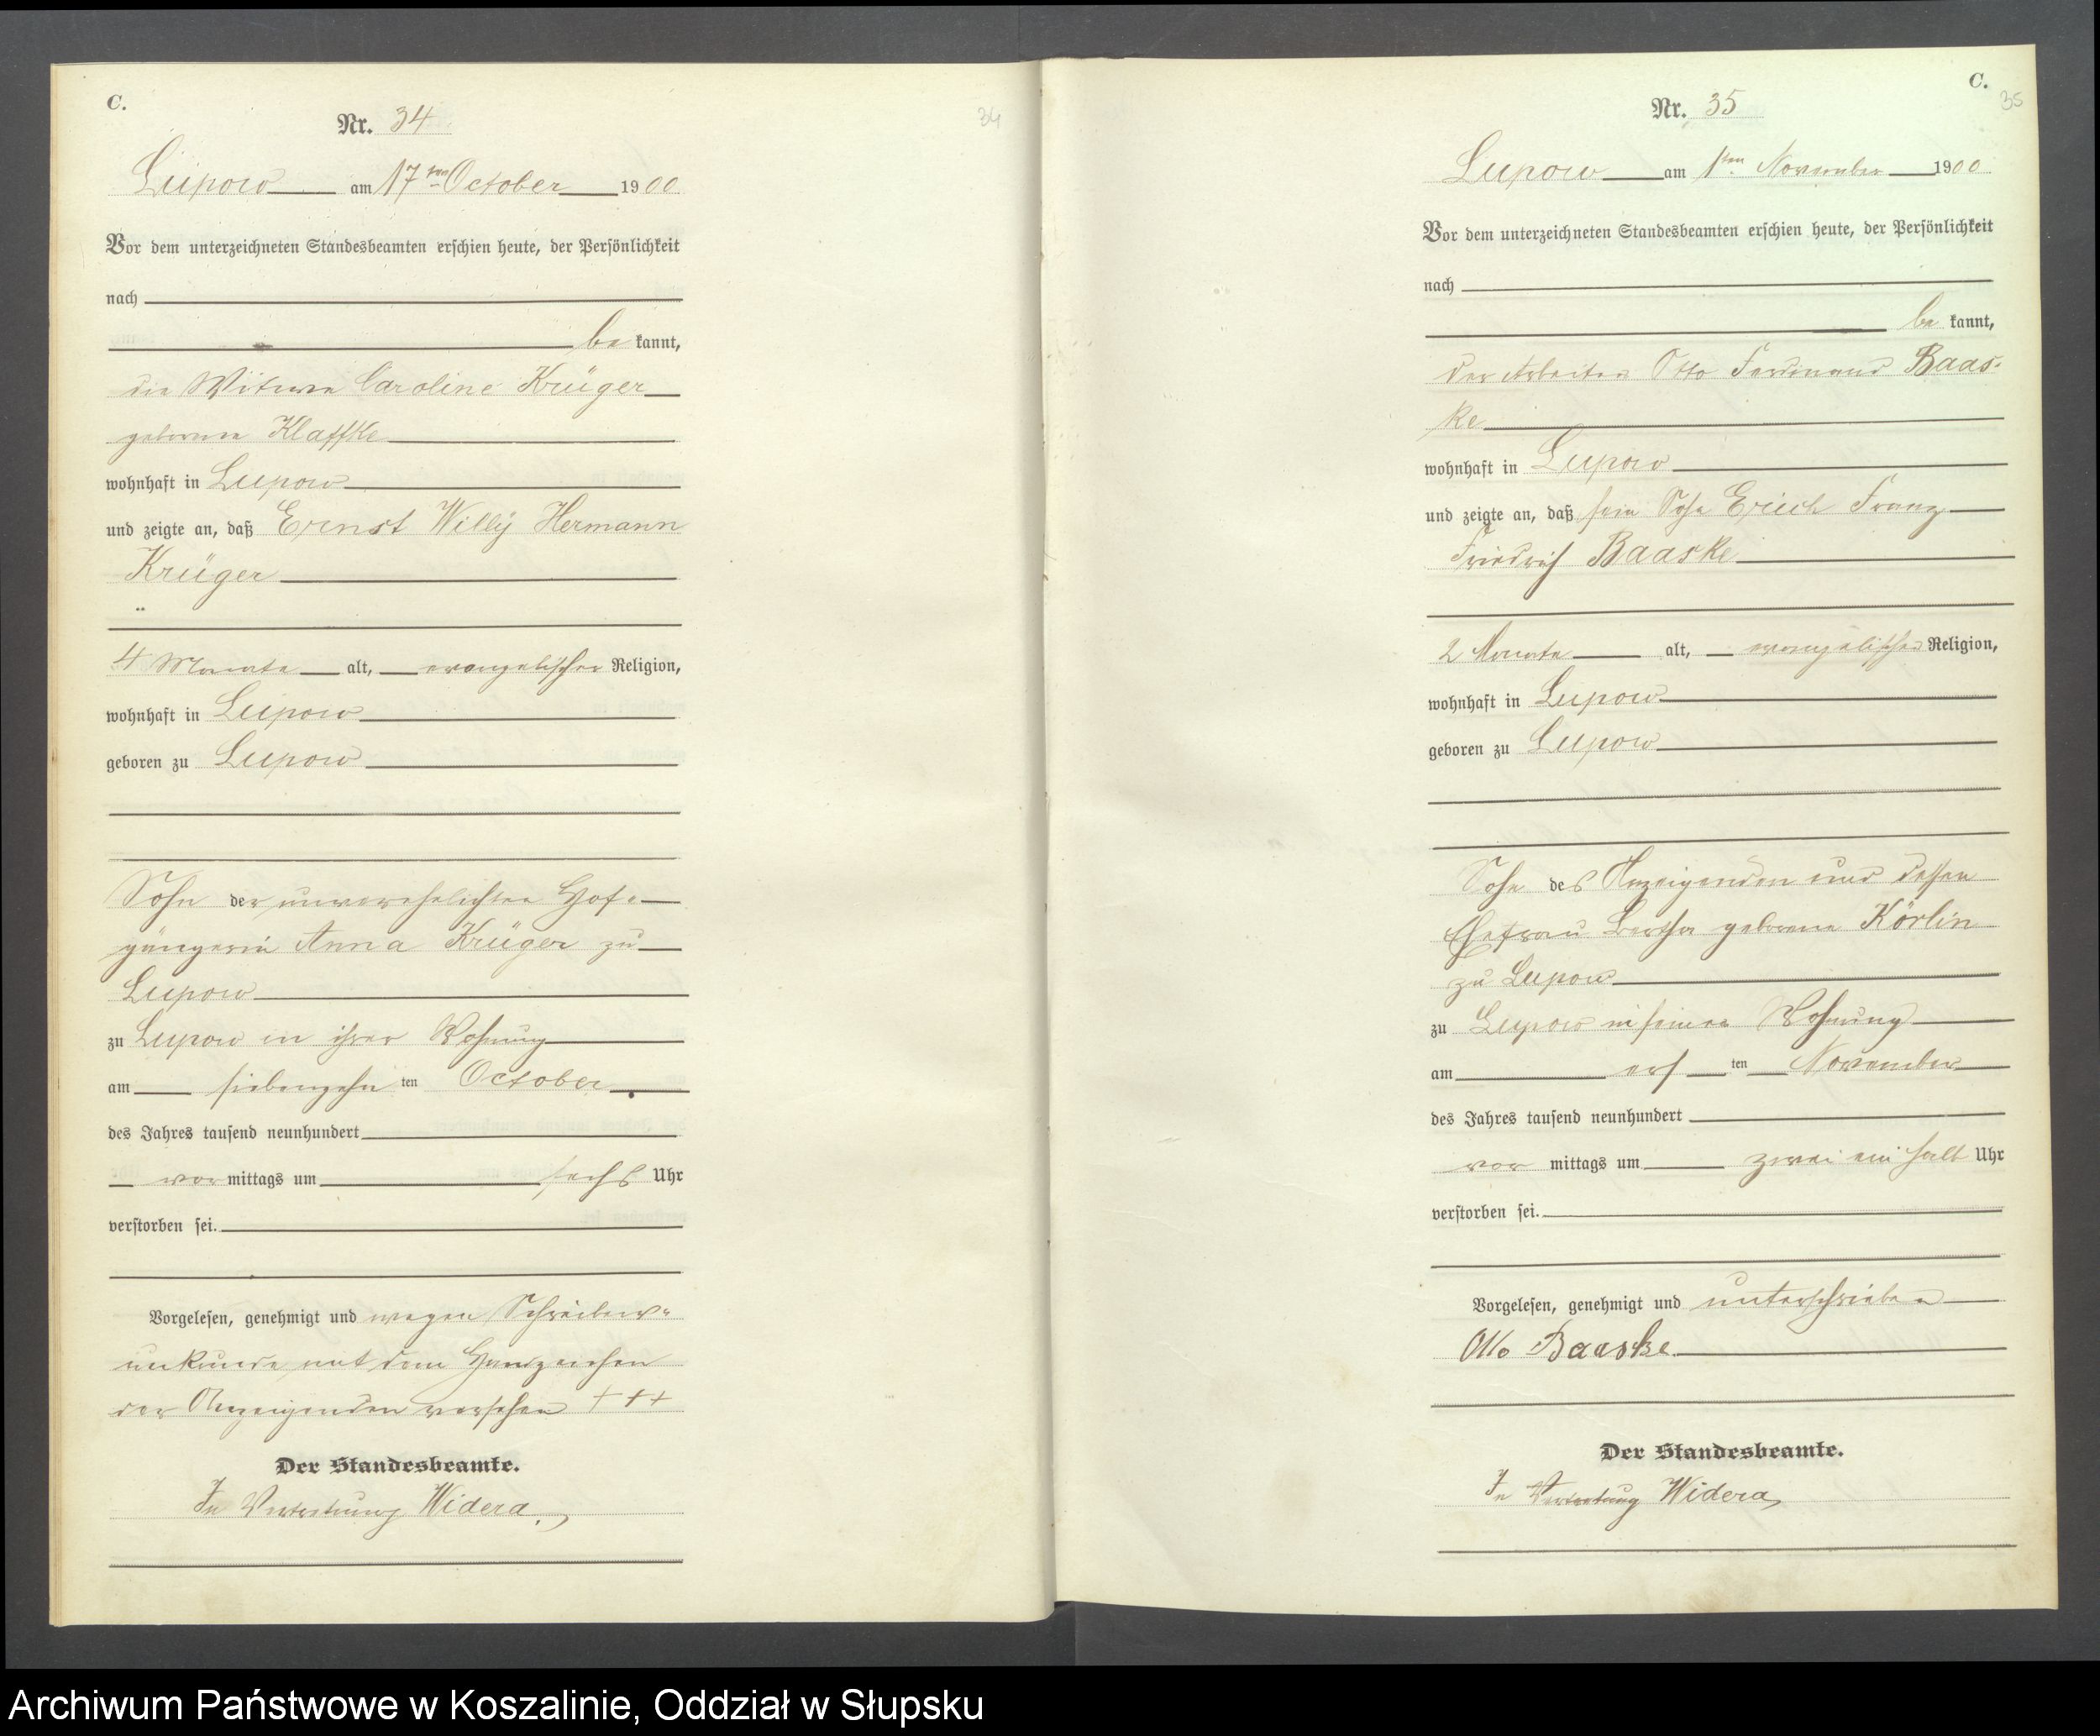 C.
Nr. 34
34
Lupow am 17ten October 1900
Vor dem unterzeichneten Standesbeamten erschien heute, der Persönlichkeit
nach
be kannt,
die Witwe Caroline Krüger
geborene Klaffke
wohnhaft in Lupow
und zeigte an, daß Ernst Willy Hermann
Krüger
4 Monate alt, evangelischer Religion,
wohnhaft in Lupow
geboren zu Lupow
Sohn der unverehelichten Hof-
gängerin Anna Krüger zu
Lupow
zu Lupow in ihrer Wohnung
am siebenzehn ten October
des Jahres tausend neunhundert
vor mittags um sechs Uhr
verstorben sei.
Vorgelesen, genehmigt und wegen Schreibens-
unkunde mit dem Handzeichen
der Anzeigenden versehen +++
Der Standesbeamte.
In Vertretung Widera.
C.
35
Nr. 35
Lupow am 1ten November 1900
Vor dem unterzeichneten Standesbeamten erschien heute, der Persönlichkeit
nach
be kannt,
der Arbeiter Otto Ferdinand Baas-
ke
wohnhaft in Lupow
und zeigte an, daß sein Sohn Erich Franz
Friedrich Baaske
2 Monate alt, evangelischer Religion,
wohnhaft in Lupow
geboren zu Lupow
Sohn des Anzeigenden und dessen
Ehefrau Bertha geborene Körlin
zu Lupow
zu Lupow in seiner Wohnung
am ers ten November
des Jahres tausend neunhundert
vor mittags um zwei ein halb Uhr
verstorben sei.
Vorgelesen, genehmigt und unterschrieben
Otto Baaske
Der Standesbeamte.
In Vertretung Widera
Archiwum Państwowe w Koszalinie, Oddział w Słupsku